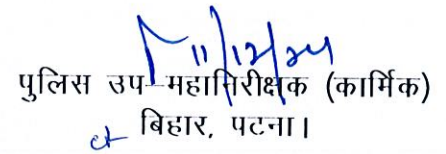 11/12/24
पुलिस उप-महानिरीक्षक (कार्मिक)
बिहार, पटना।